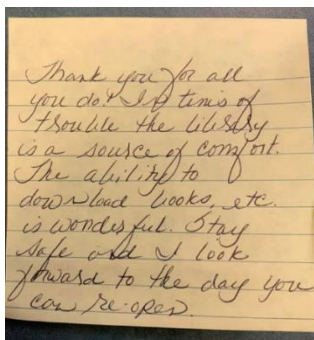 Thank you for all
you do! In times of
trouble the library
is a source of comfort.
The ability to
download books, etc.
is wonderful. Stay
safe and I look
forward to the day you
can re-open.